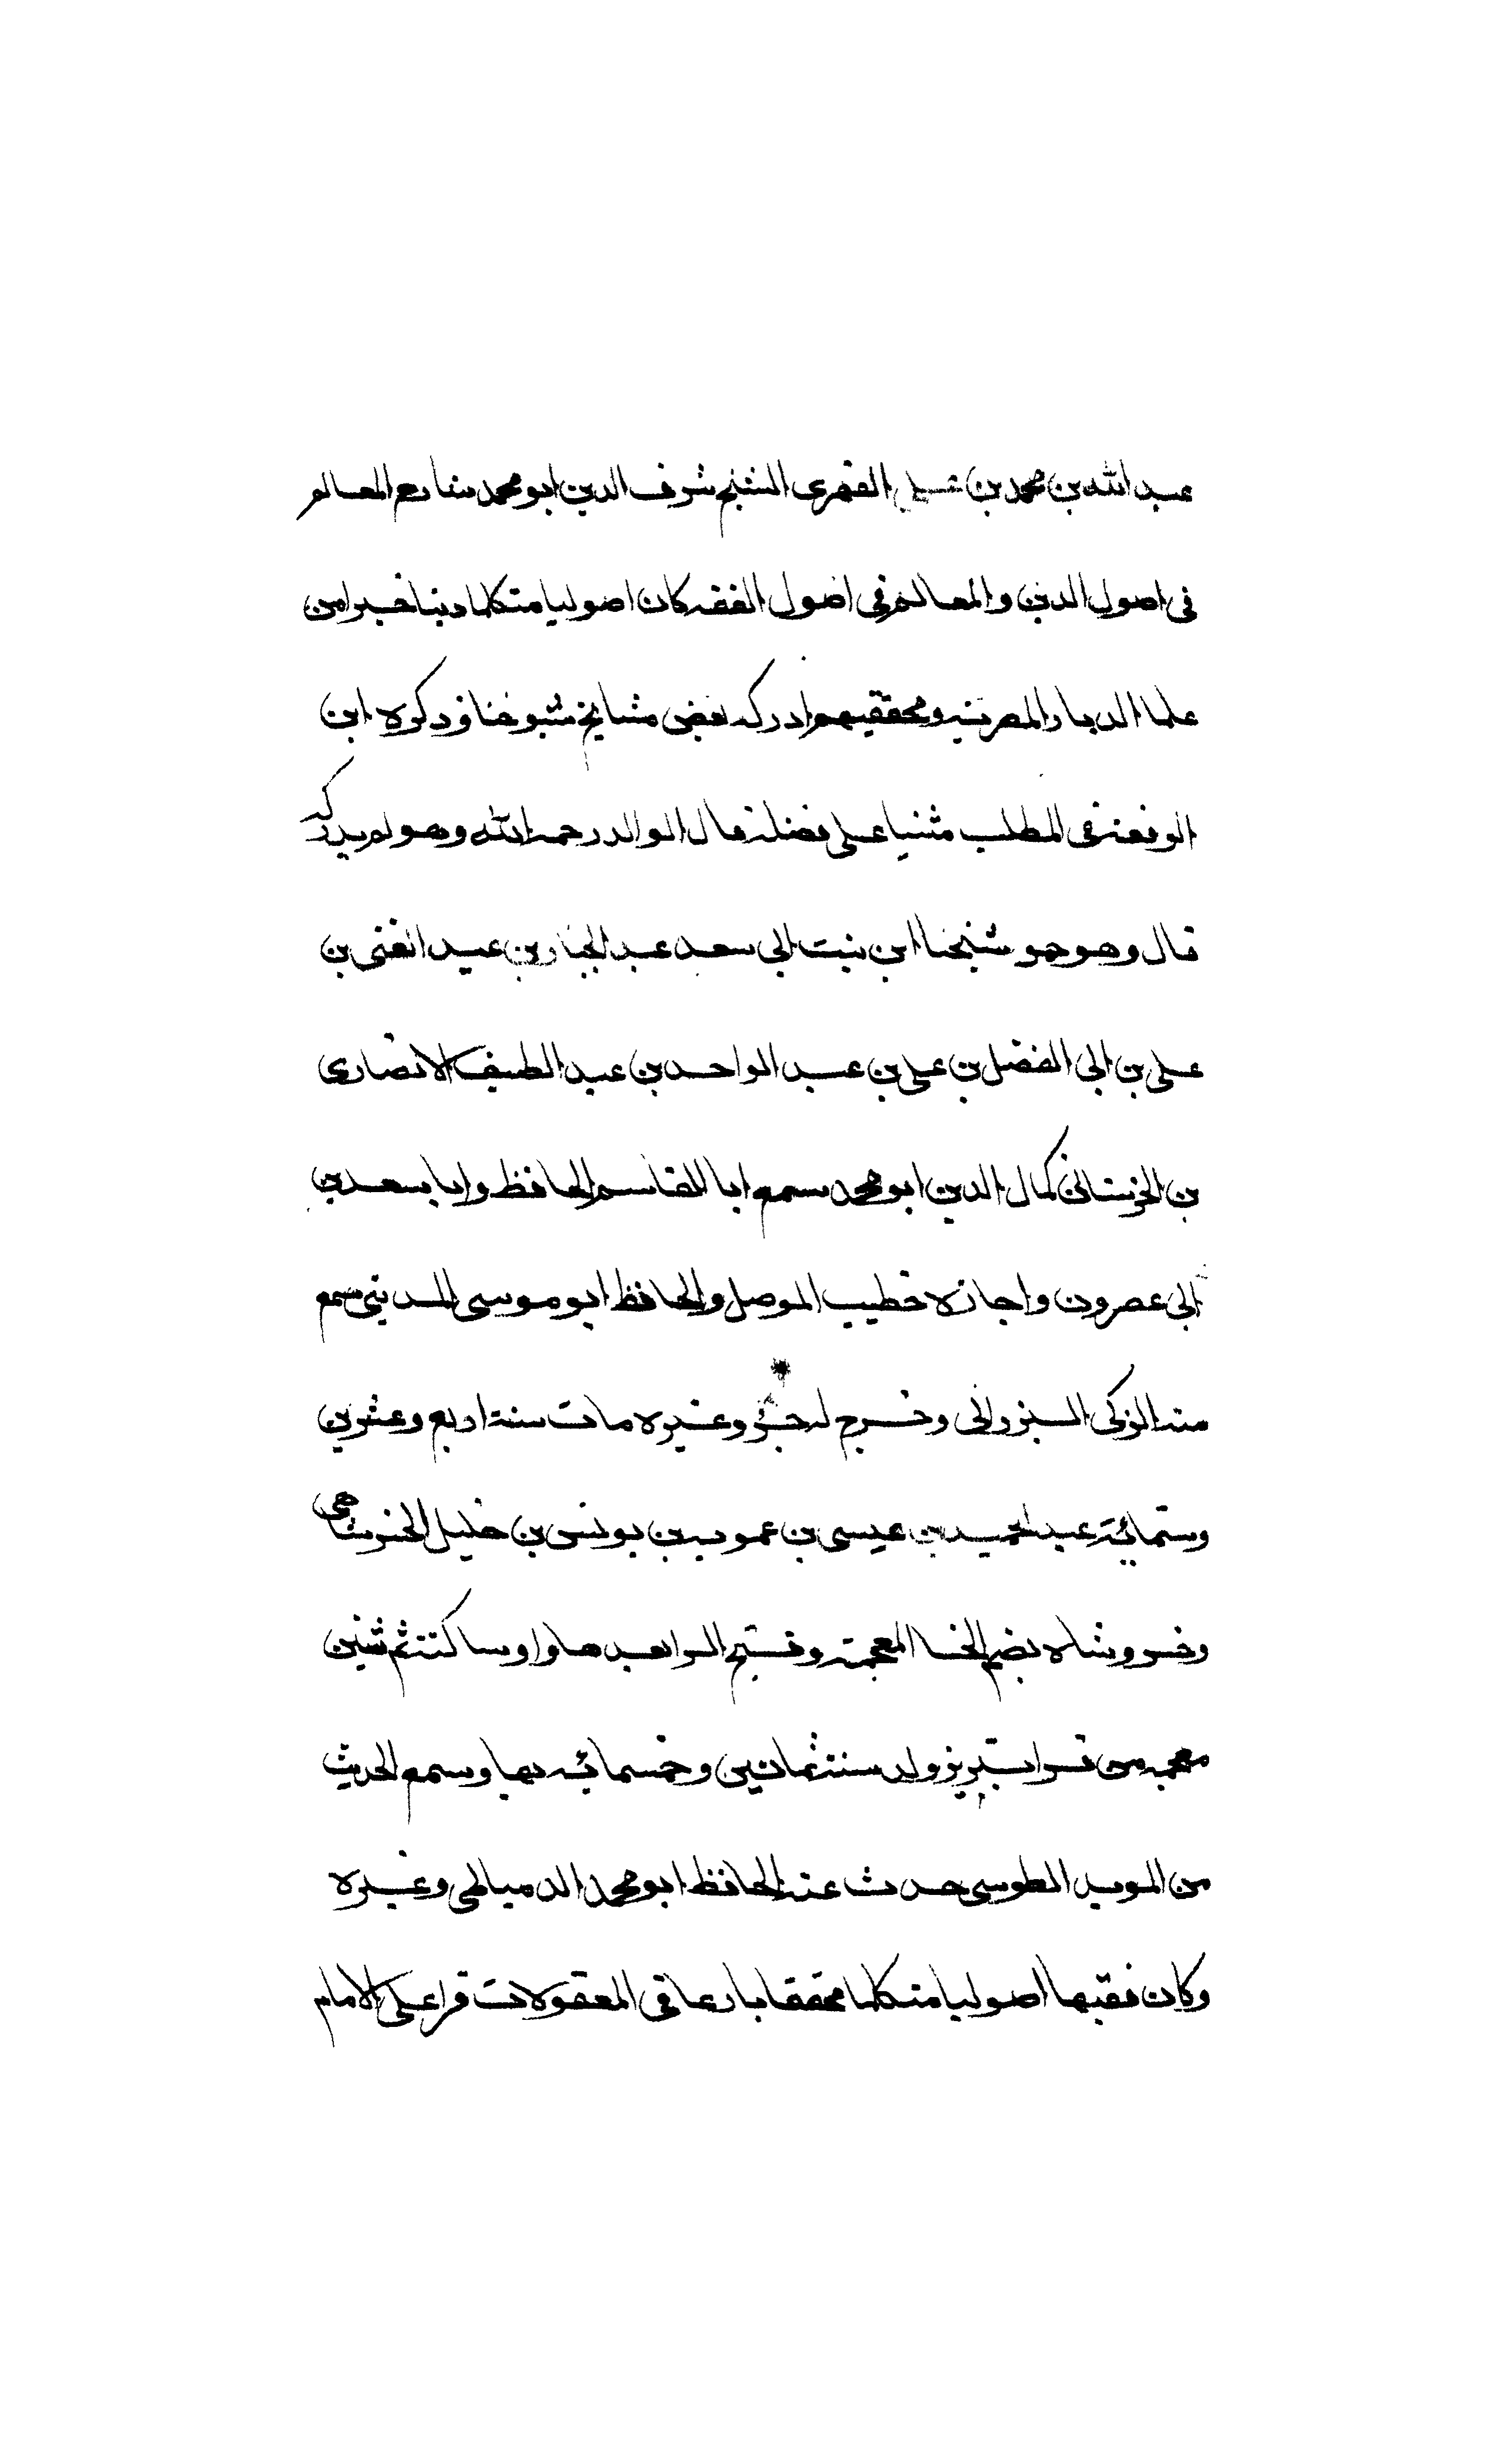 عبد الله بن محمد بن علي الفهرى الشيخ شرف الدين ابو محمد شارح المعالم
فى اصول الدين والمعالم فى اصول الفقه كان اصوليا متكلما دينا خيرا من
علما الديار المصرية ومحققيهم ادركه بعض مشايخ شيوخنا وذكره ابن
الرفعة فى المطلب مثنيا على فضله قال الوالد رحمه الله وهو لم يدركه
قال وهو حمو شيخنا ابن بنت ابى سعد عبد الجبار بن عبد الغنى بن
على بن ابى الفضل بن على بن عبد الواحد بن عبد الطيف الانصارى
بن الحرستانى كمال الدين ابو محمد سمع ابا القاسم الحافظ وابا سعد بن
ابى عصرون واجازه خطيب الموصل والحافظ ابو موسى المدينى سمع
منه الزكى البزرالى وخرج له جزؤ وغيره مات سنة اربع وعشرين
وستمائة عبد الحميد بن عيسى بن عمويه بن يونس بن خليل الخسروشاهى
وخسروشاه بضم الخا المعجمة وفتح الرا بعدها واو ساكنة ثم شين
معجمة من قرا تبريز ولد سنة ثمانين وخمسمائة بها وسمع الحديث
من المويد الطوسى حدث عنه الحافظ ابو محمد الدمياطى وغيره
وكان فقيها اصوليا متكلما محققا بارعا فى المعقولات قرا على الامام